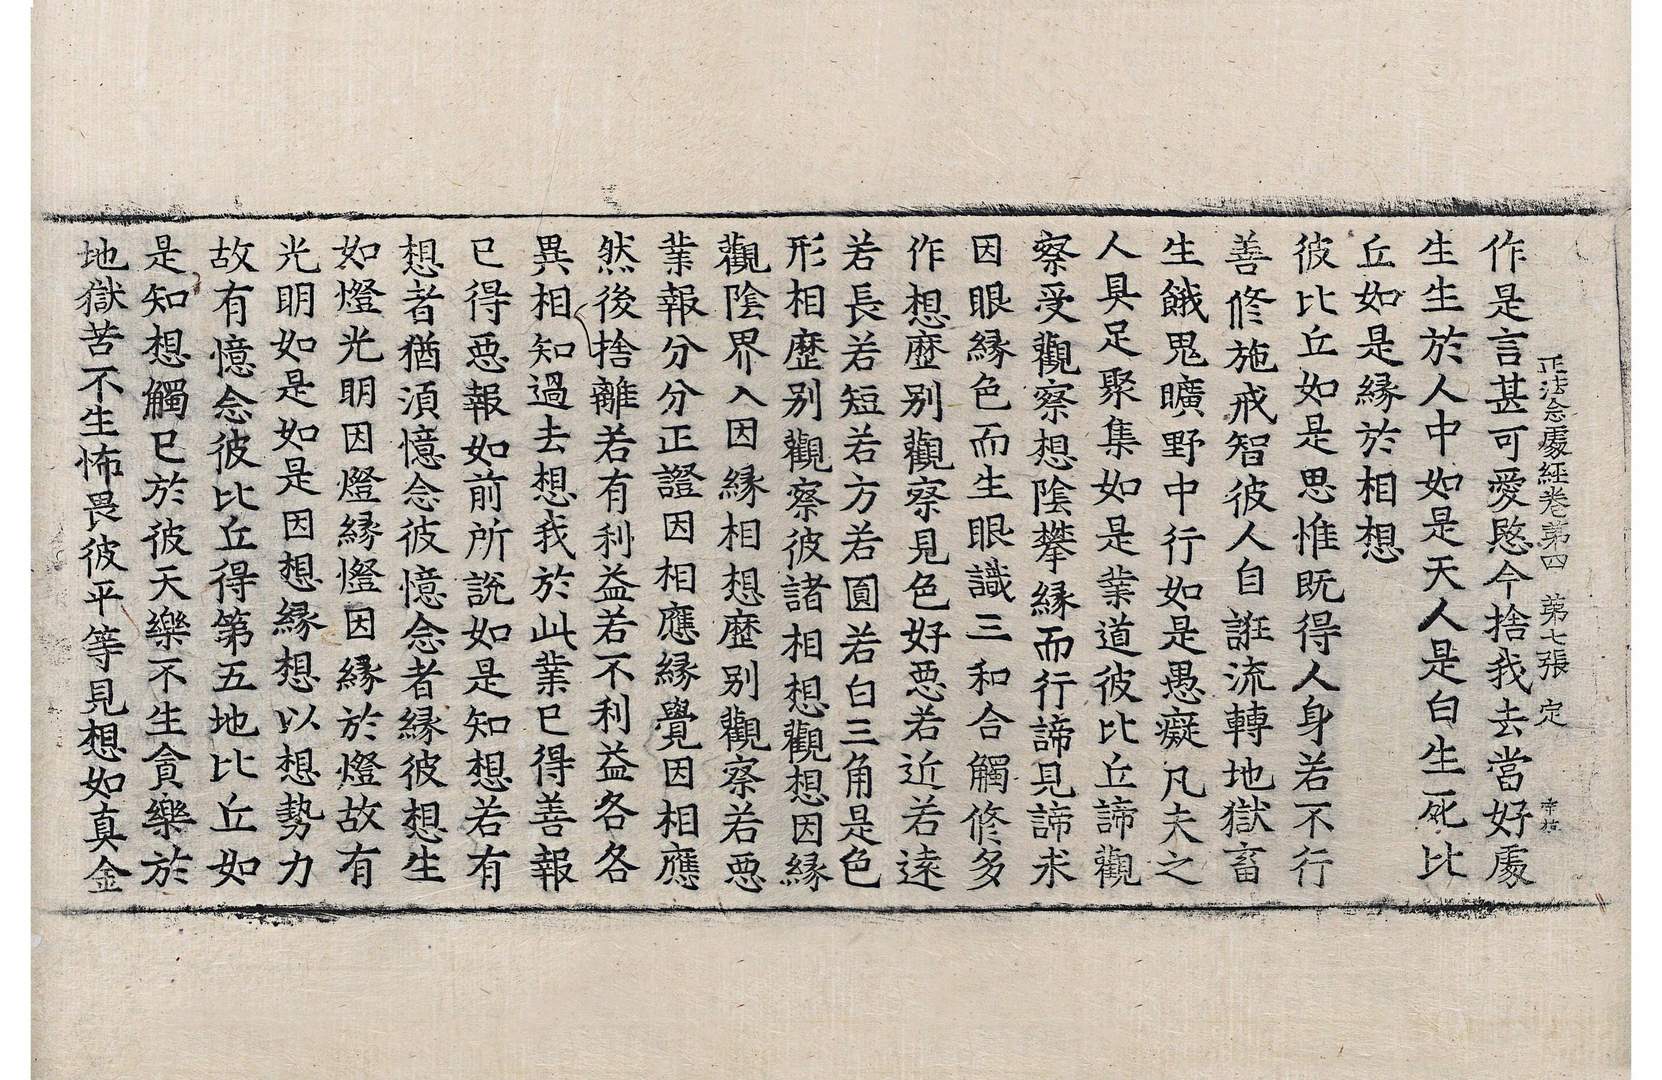 正法念處經卷第四　第七張　定
作是言甚可愛愍今捨我去當好處
生生於人中如是天人是白生死比
丘如是縁於相想
彼比丘如是思惟既得人身若不行
善修施戒智彼人自誑流轉地獄畜
生餓鬼曠野中行如是愚癡凡夫之
人具足聚集如是業道彼比丘諦觀
察受觀察想陰攀縁而行諦見諦求
因眼縁色而生眼識三和合觸修多
作想歷别觀察見色好惡若近若遠
若長若短若方若圓若白三角是色
形相歷别觀察彼諸相想觀想因縁
觀陰界入因縁相想歷别觀察若惡
業報分分正證因相應縁覺因相應
然後捨離若有利益若不利益各各
異相知過去想我於此業已得善報
已得惡報如前所說如是知想若有
想者猶須憶念彼憶念者縁彼想生
如燈光明因燈縁燈因縁於燈故有
光明如是如是因想縁想以想勢力
故有憶念彼比丘得第五地比丘如
是知想觸已於彼天樂不生貪樂於
地獄苦不生怖畏彼平等見想如真金